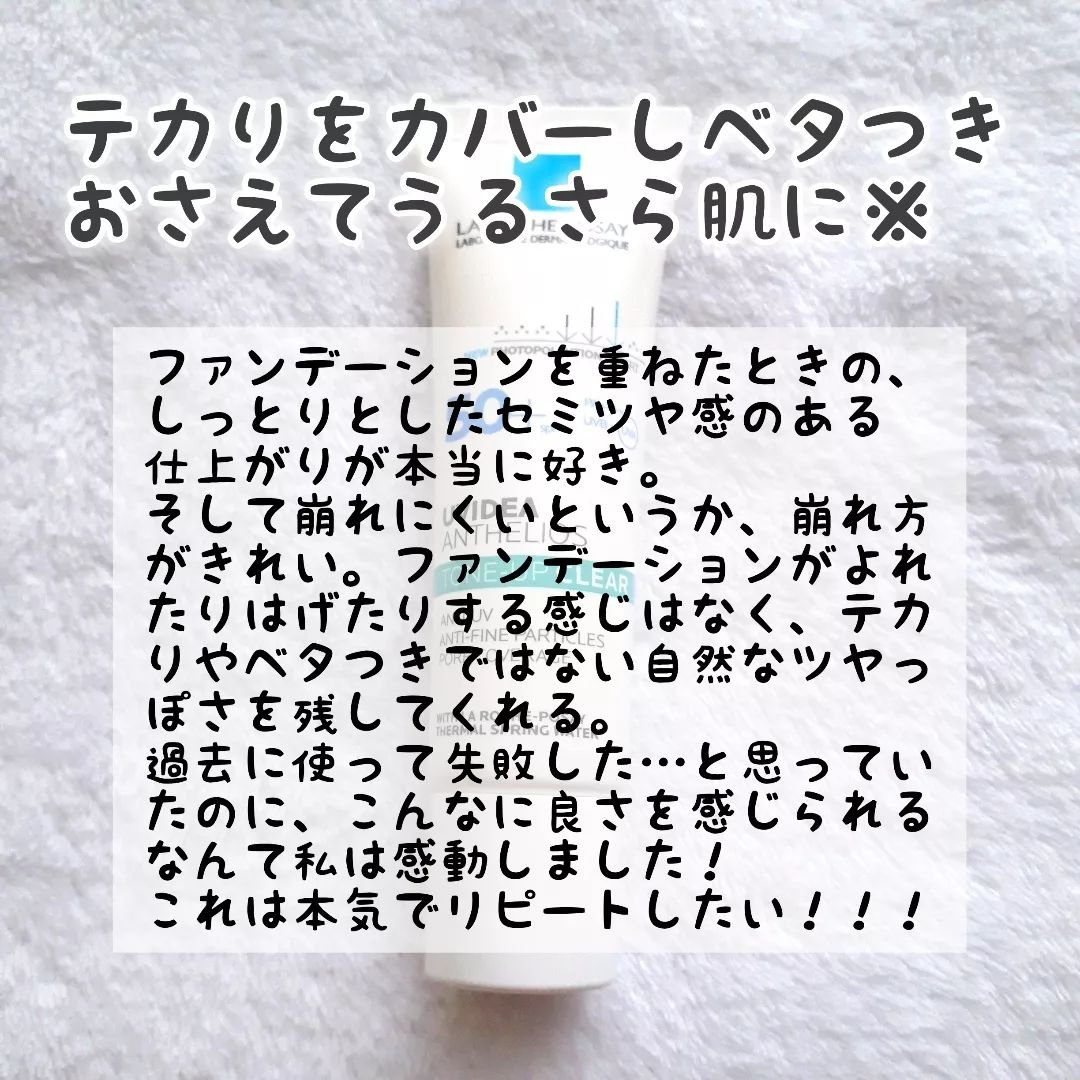 テカりをカバーしベタつき
おさえてうるさら肌に※
ファンデーションを重ねたときの、
しっとりとしたセミツヤ感のある
仕上がりが本当に好き。
そして崩れにくいというか、崩れ方
がきれい。ファンデーションがよれ
たりはげたりする感じはなく、テカ
りやベタつきではない自然なツヤっ
ぽさを残してくれる。
過去に使って失敗した…と思ってい
たのに、こんなに良さを感じられる
なんて私は感動しました！
これは本気でリピートしたい！！！
ANTHELIOS
TONE-UP CLEAR
ANTI-FINE PARTICLES
THERMAL SPRING WATER